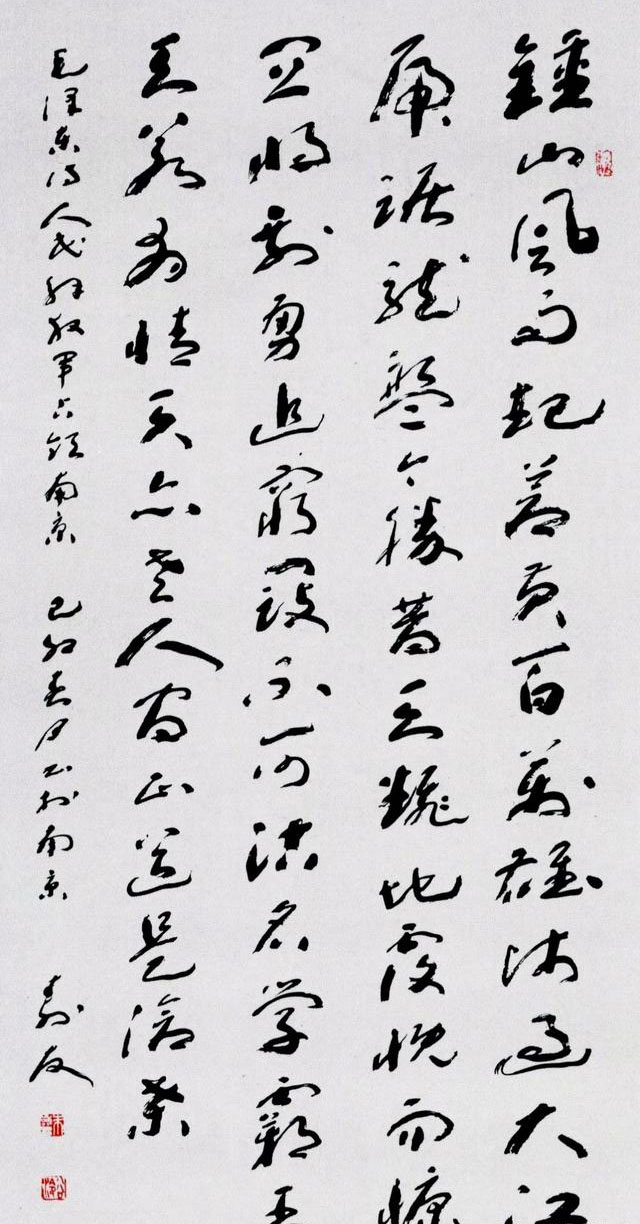 鍾山風雨起蒼黃百萬雄師過大江
虎踞龍盤今勝昔天翻地覆慨而慷
宜將剩勇追窮寇不可沽名學霸王
天若有情天亦老人間正道是滄桑
毛澤東詩人民解放軍占領南京 己卯春月書於南京 壽友